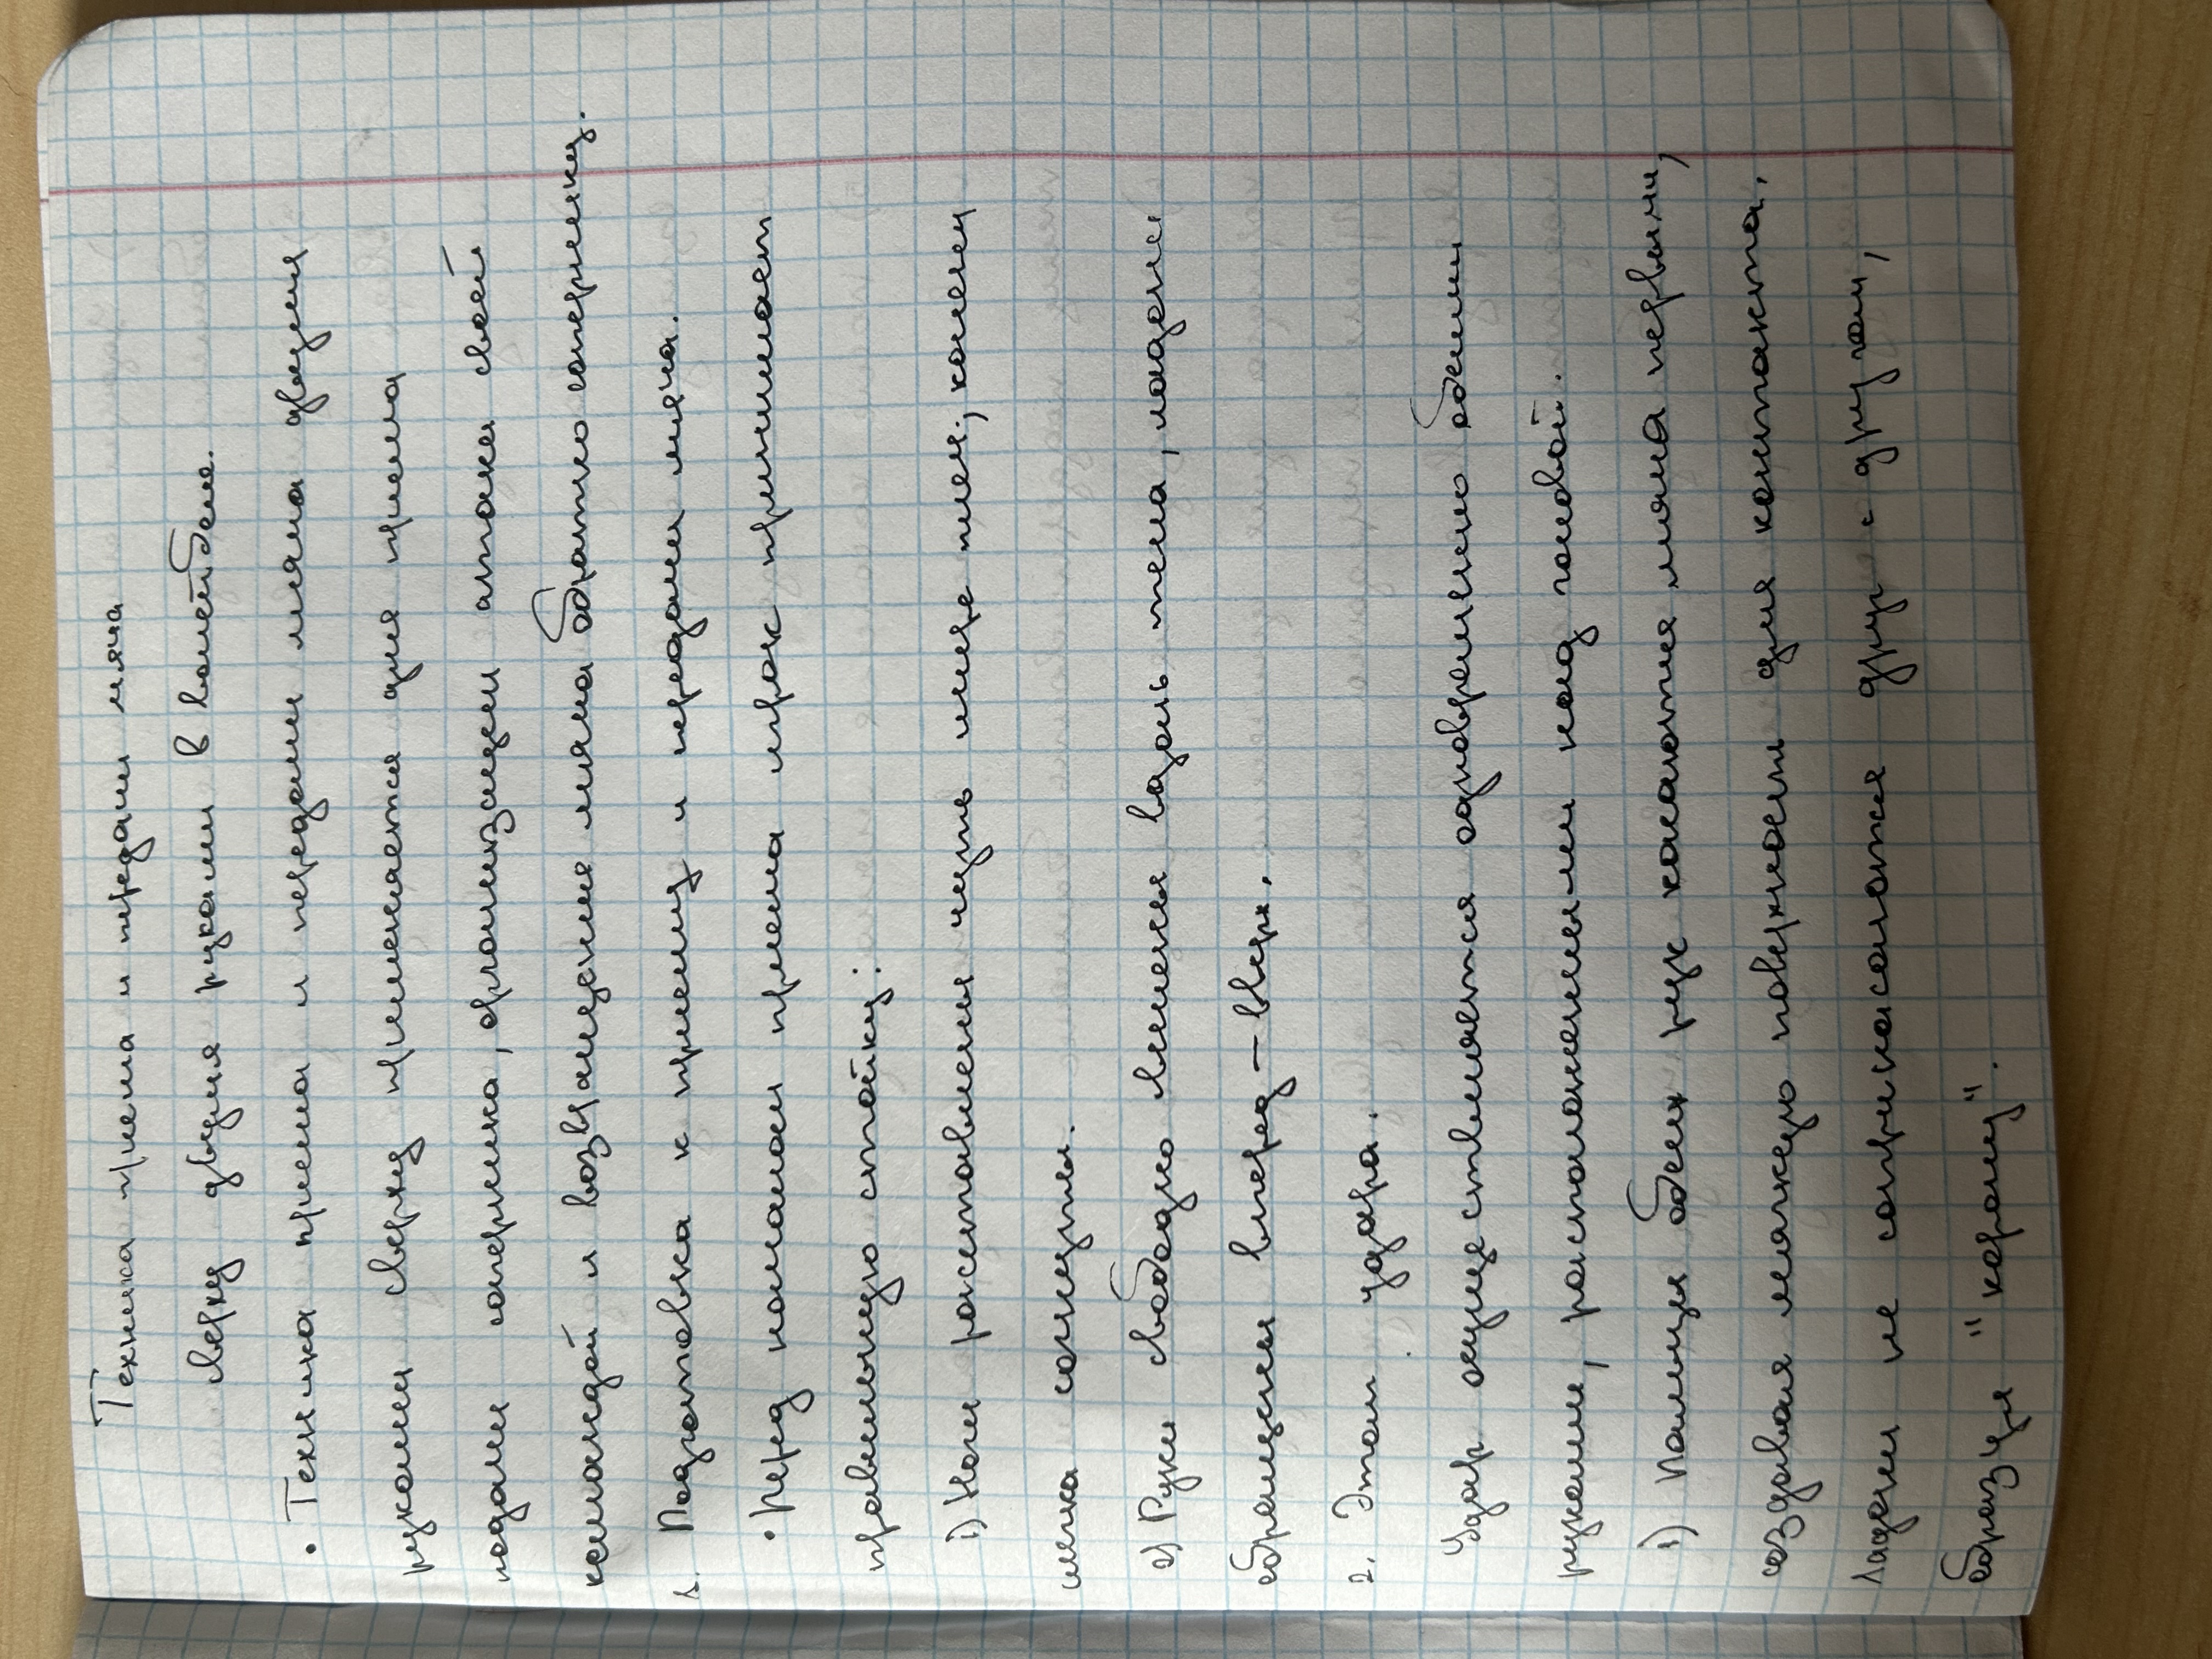 Техника приема и передачи мяча
сверху двумя руками в волейболе.
• Техника приема и передачи мяча двумя
руками сверху применяется для приема
подачи соперника, организации атаки своей
командой и возвращение мяча обратно сопернику.
1. Подготовка к приему и передачи мяча.
• Перед началом приема игрок принимает
правильную стойку:
1) Ноги расставлены чуть шире плеч, колени
слегка согнуты.
2) Руки свободно вытянуты вдоль тела, ладони
обращены вперед – вверх.
2. Этап удара.
Удар осуществляется одновременно обеими
руками, расположенными над головой.
1) Пальцы обеих рук касаются мяча первыми,
создавая мягкую поверхность для контакта.
Ладони не соприкасаются друг с другом,
образуя "корзину".